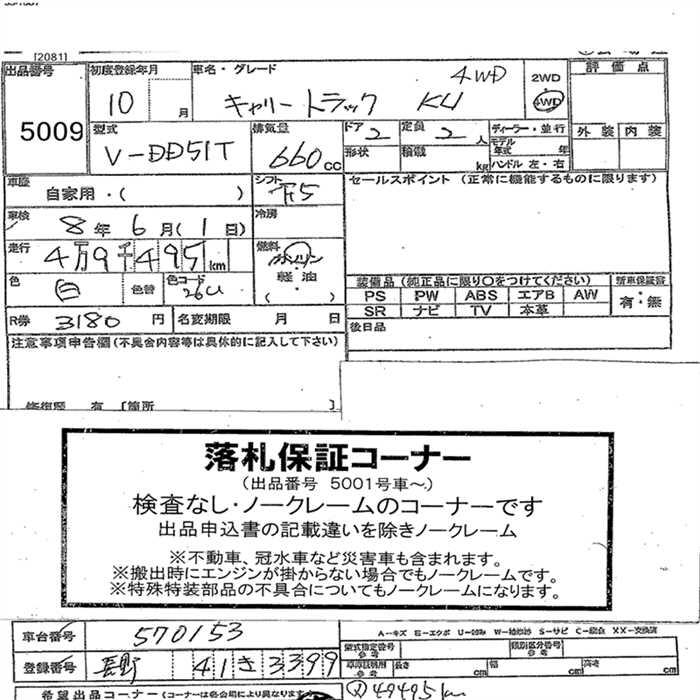 [2081]
出品番号 初度登録年月 車名・グレード 4WD 2WD 評価点
5009 10 月 キャリートラック KU 4WD
型式 排気量 ドア 2 定員 2 人 ディーラー・並行 外装 内装
V-DD51T 660 cc 形状 積載 kg モデル年式 年 ハンドル 左・右
車歴 自家用・( ) シフト F5 セールスポイント (正常に機能するものに限ります)
車検 8 年 6 月 ( 1 日) 冷房
走行 4万9千495 km 燃料 ガソリン
軽油
( ・ )
色 白 色替 色コード 26U 装備品 (純正品に限り○をつけてください) 新車保証書
PS PW ABS エアB AW 有・無
R券 3180 円 名変期限 月 日 SR ナビ TV 本革
注意事項申告欄 (不具合内容等は具体的に記入して下さい) 後日品
修復歴 有 [箇所 ]
落札保証コーナー
(出品番号 5001号車~)
検査なし・ノークレームのコーナーです
出品申込書の記載違いを除きノークレーム
※不動車、冠水車など災害車も含まれます。
※搬出時にエンジンが掛からない場合でもノークレームです。
※特殊特装部品の不具合についてもノークレームになります。
車台番号 570153
A-キズ E-エクボ U-凹み W-補修跡 S-サビ C-腐点 XX-交換済
型式指定番号 参考 類別区分番号
登録番号 長野 41 き 3399 車庫証明用 参考 長さ cm 幅 cm 高さ cm
希望出品コーナー (コーナーは各会場により異なります) 49495km